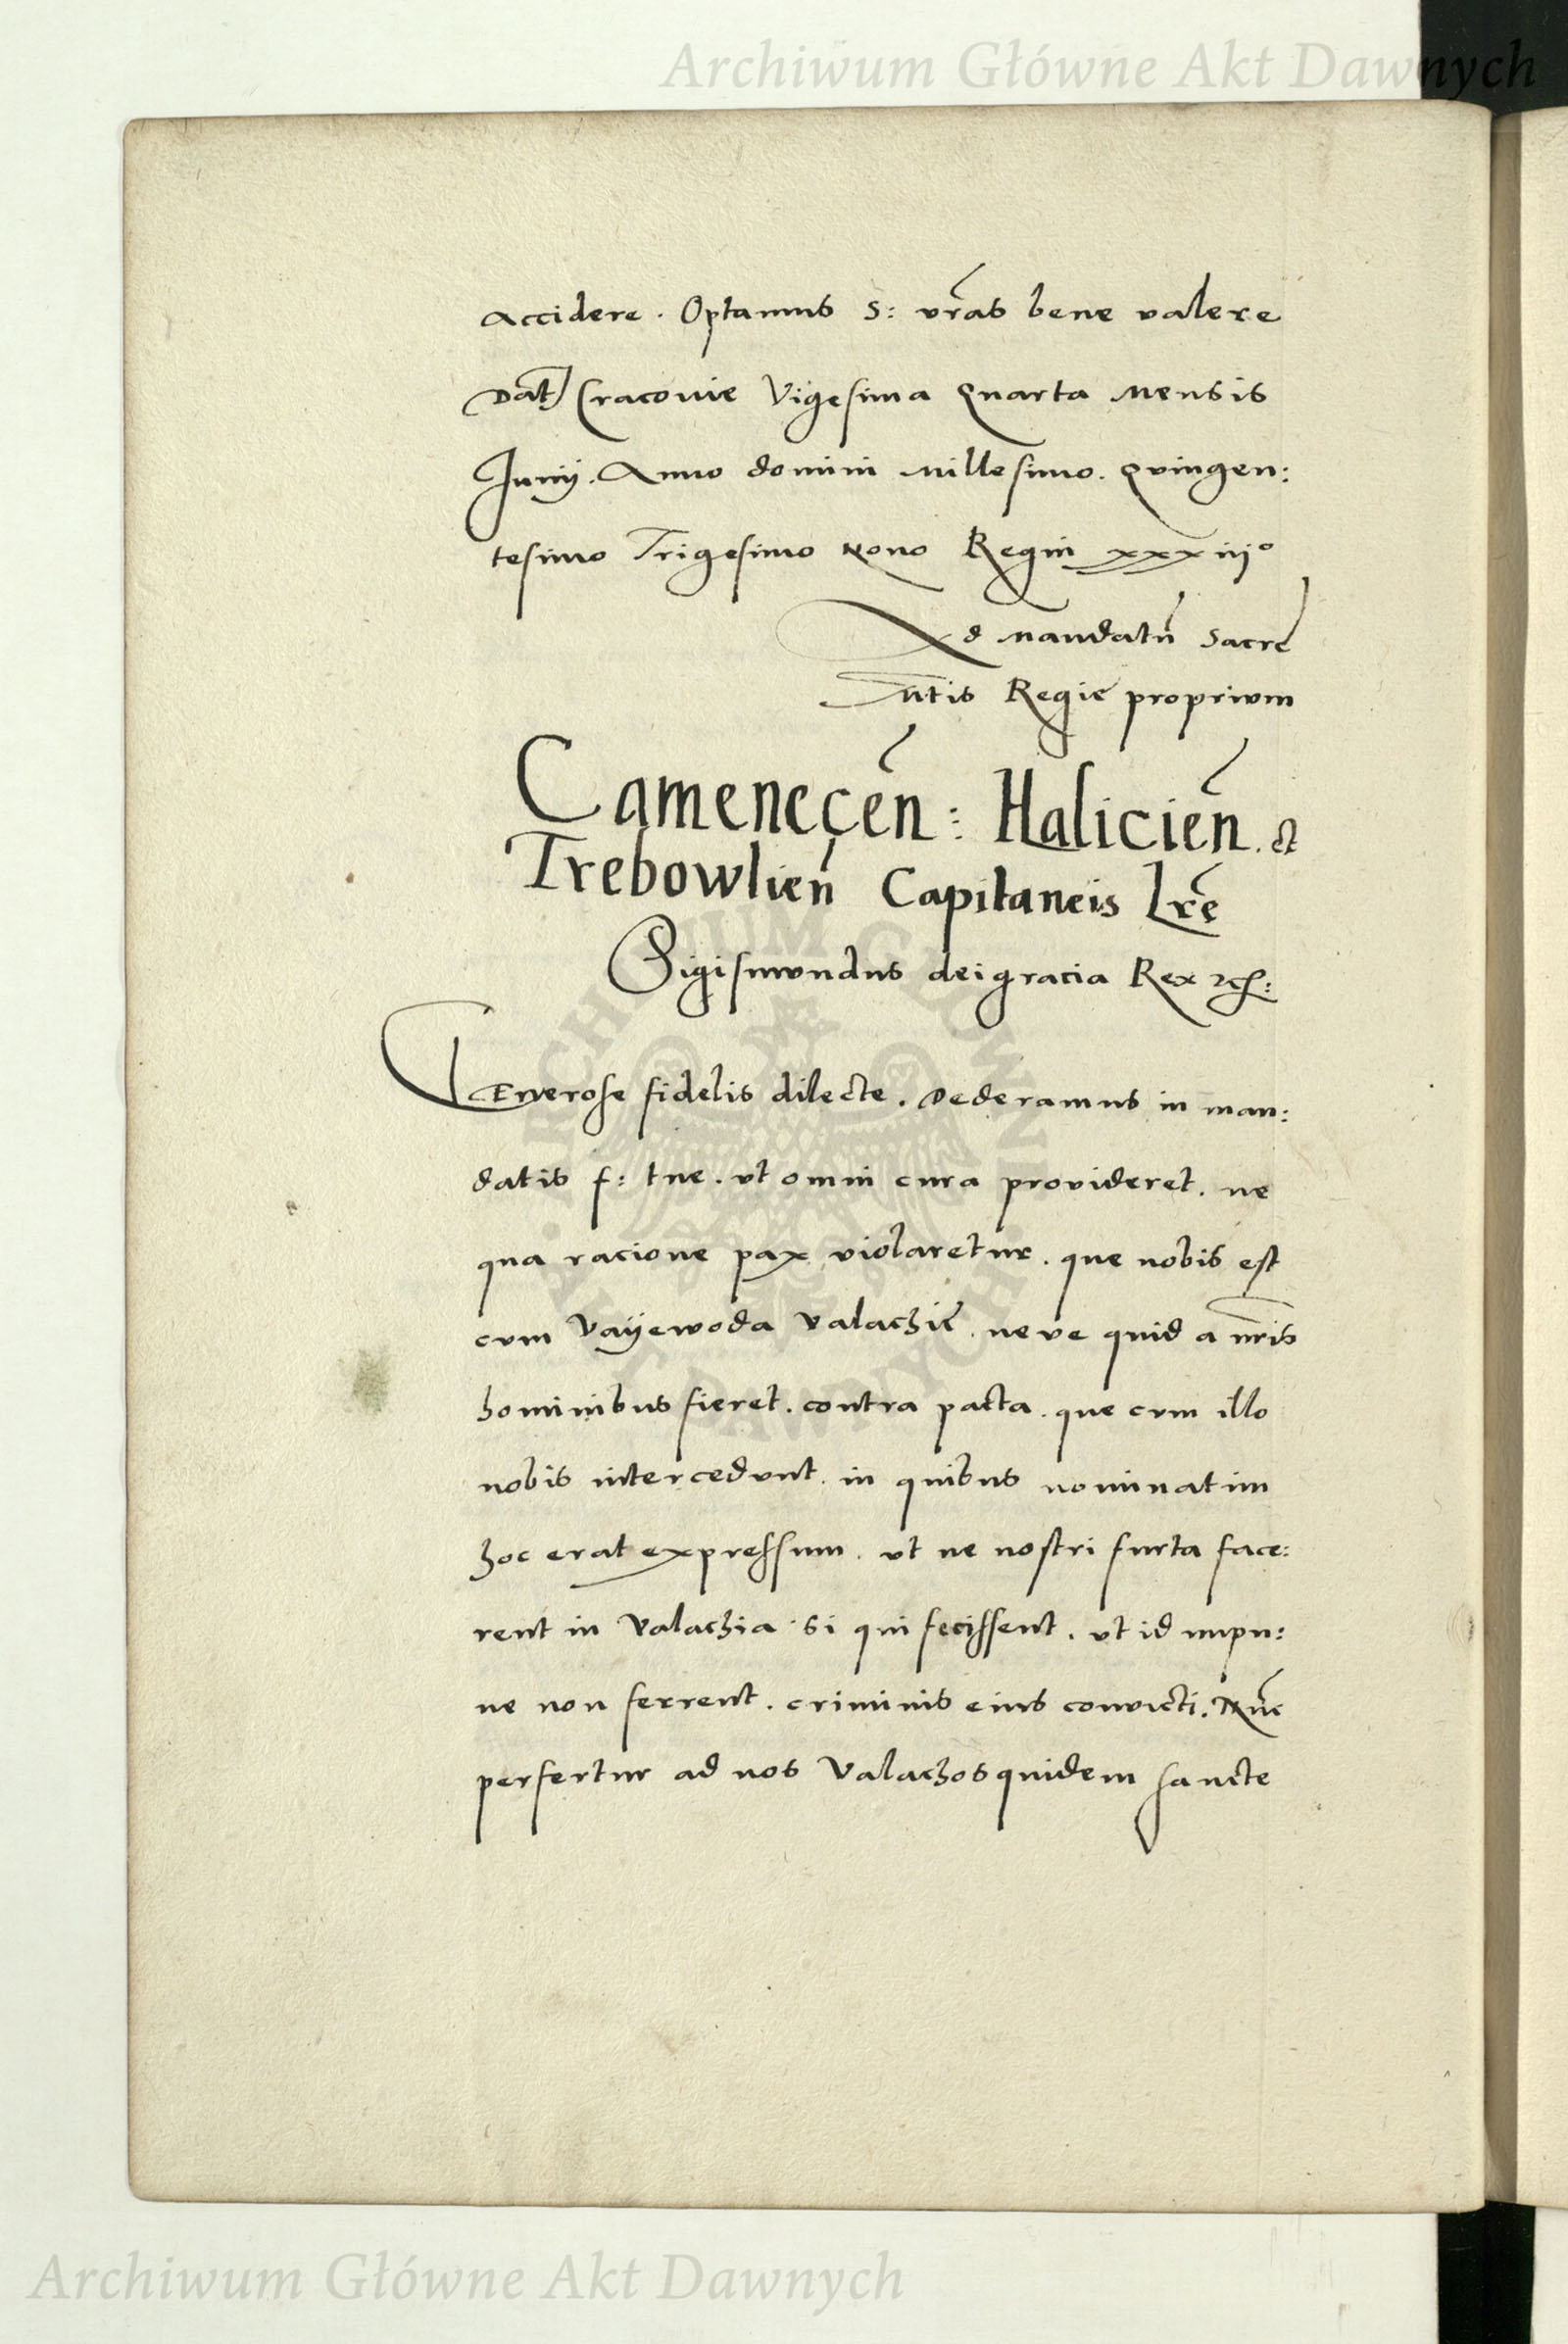 Archiwum Główne Akt Dawnych
Accidere . Optamus S: vr̃as bene valere
Dat̃ Cracovie Vigesima Quarta Mensis
Junij . Anno domini Millesimo . Qvingen:
tesimo Trigesimo Nono Regni xxxiijº
Ad Mandatũ Sacrẽ
Mt̃is Regiẽ proprivm
Camenecẽn : Haliciẽn . et
Trebowlień Capitaneis Lr̃ę
Sigismvndus dei gracia Rex etc:
GEnerose fidelis dilecte . Dederamus in man:
datis f: tue . vt omni cura provideret . ne
qua racione pax violaretur . que nobis est
cvm Vayewoda Valachiẽ . neve quid a nr̃is
hominibus fieret . contra pacta . que cvm illo
nobis intercedvnt . in quibus nominatim
hoc erat expressum . vt ne nostri furta face:
rent in Valachia . si qui fecissent . vt id impu:
ne non ferrent . criminis eius convicti . Nũc
perfertur ad nos Valachos quidem sancte
Archiwum Główne Akt Dawnych